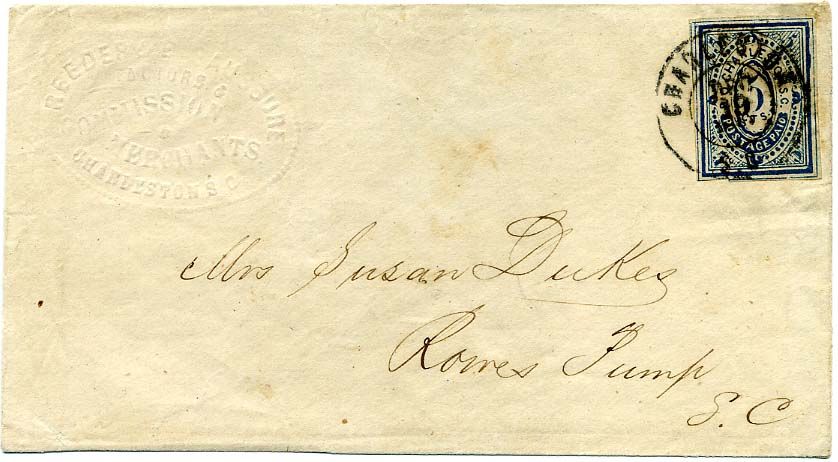 REEDER
FACTORS &
COMMISSION
MERCHANTS
CHARLESTON S C
CHARLESTON
S.C.
5
POSTAGE PAID
Mrs Susan Dukes
Rowes Pump
S. C